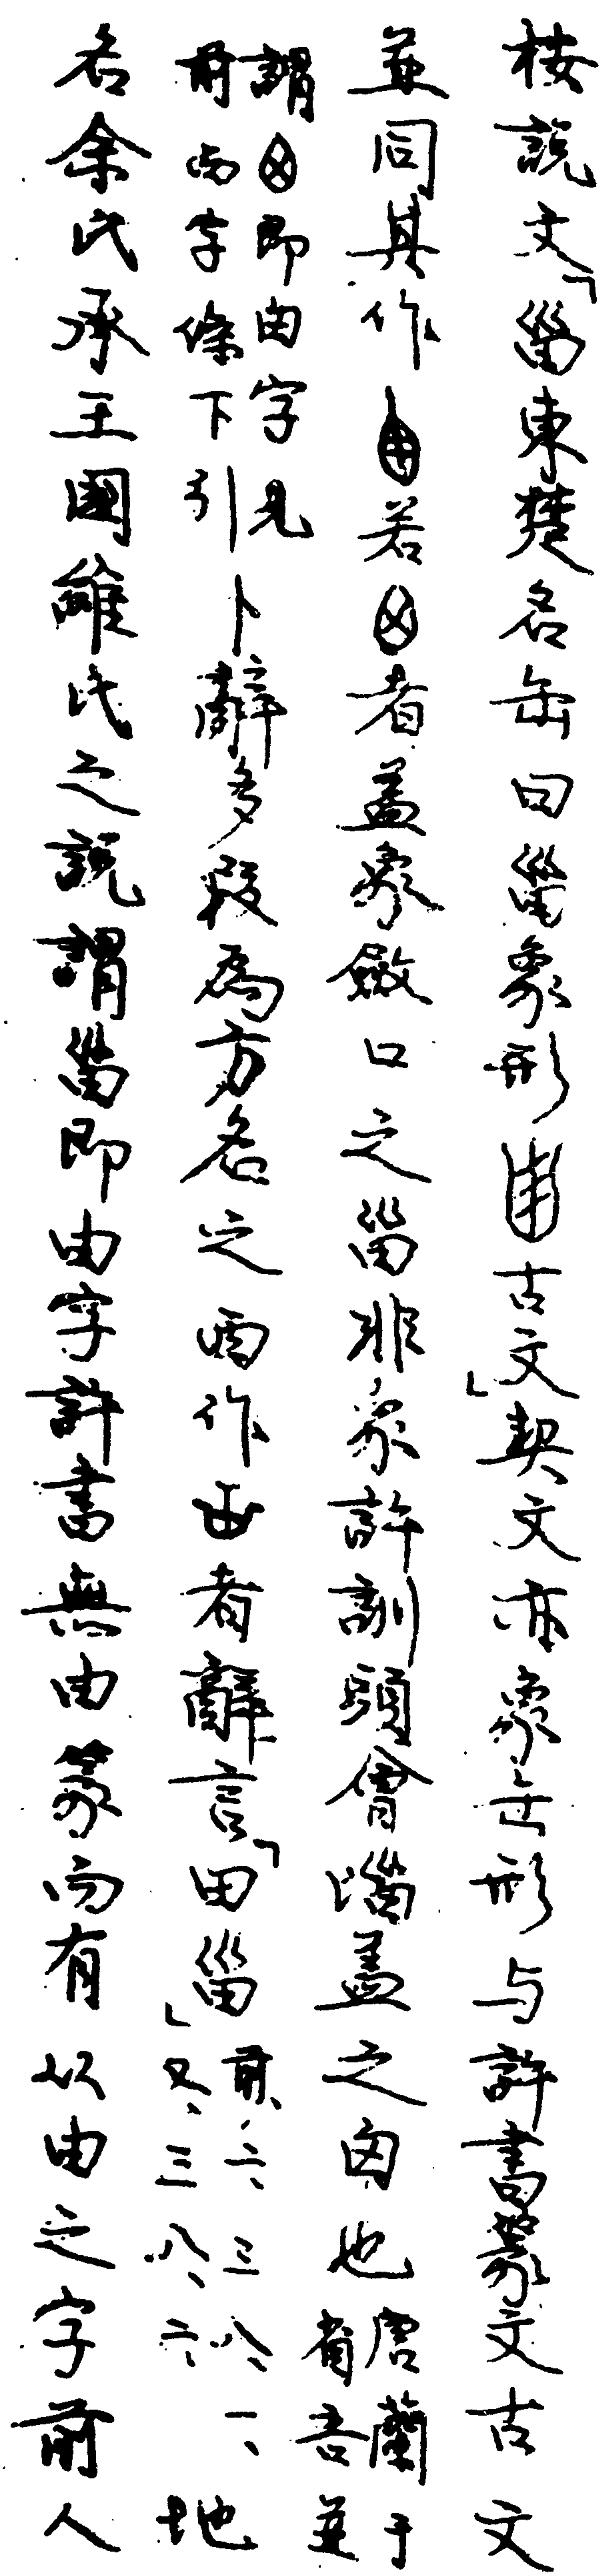 按說文「甾東楚名缶曰甾象形𠙹古文」契文亦象缶形与許書篆文古文
並同其作若者蓋象斂口之甾非象許訓頭會匘蓋之囟也唐蘭于省吾並
謂即由字見前西字條下引卜辭多叚為方名之西作甾者辭言「田甾」前、六、三八、一、又、三八、六、地
名余氏承王國維氏之説謂甾即由字許書無由篆而有从由之字前人